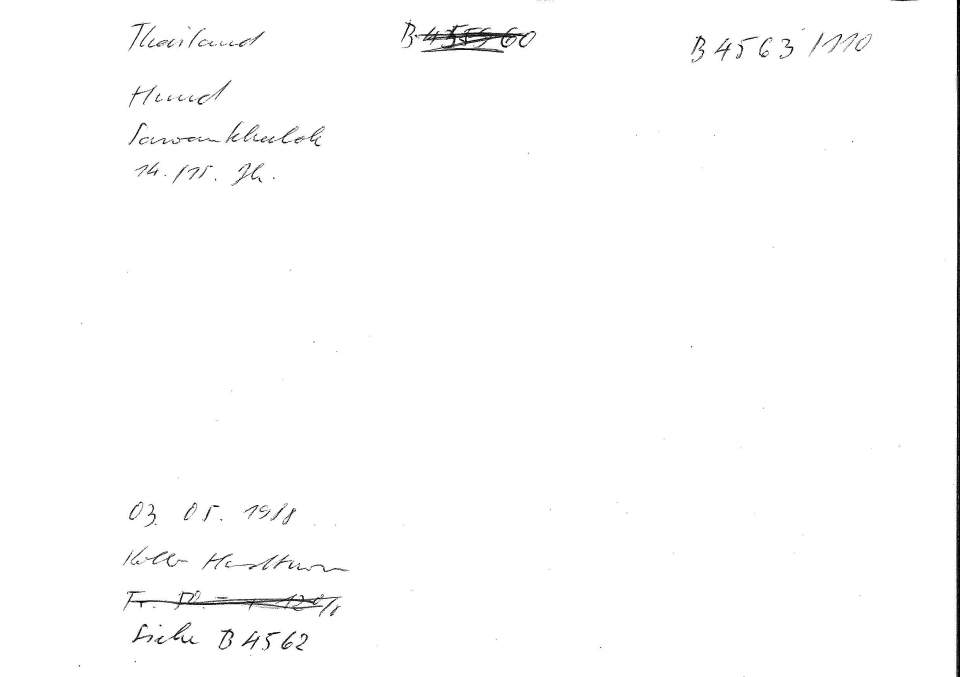 Thailand B 4559 60 B 4563 / 110
Hund
Sawankhalok
14. / 15. Jh.
03. 05. 1988
Koller Hardturm
Fr. 50.- + 12%
Siehe B 4562